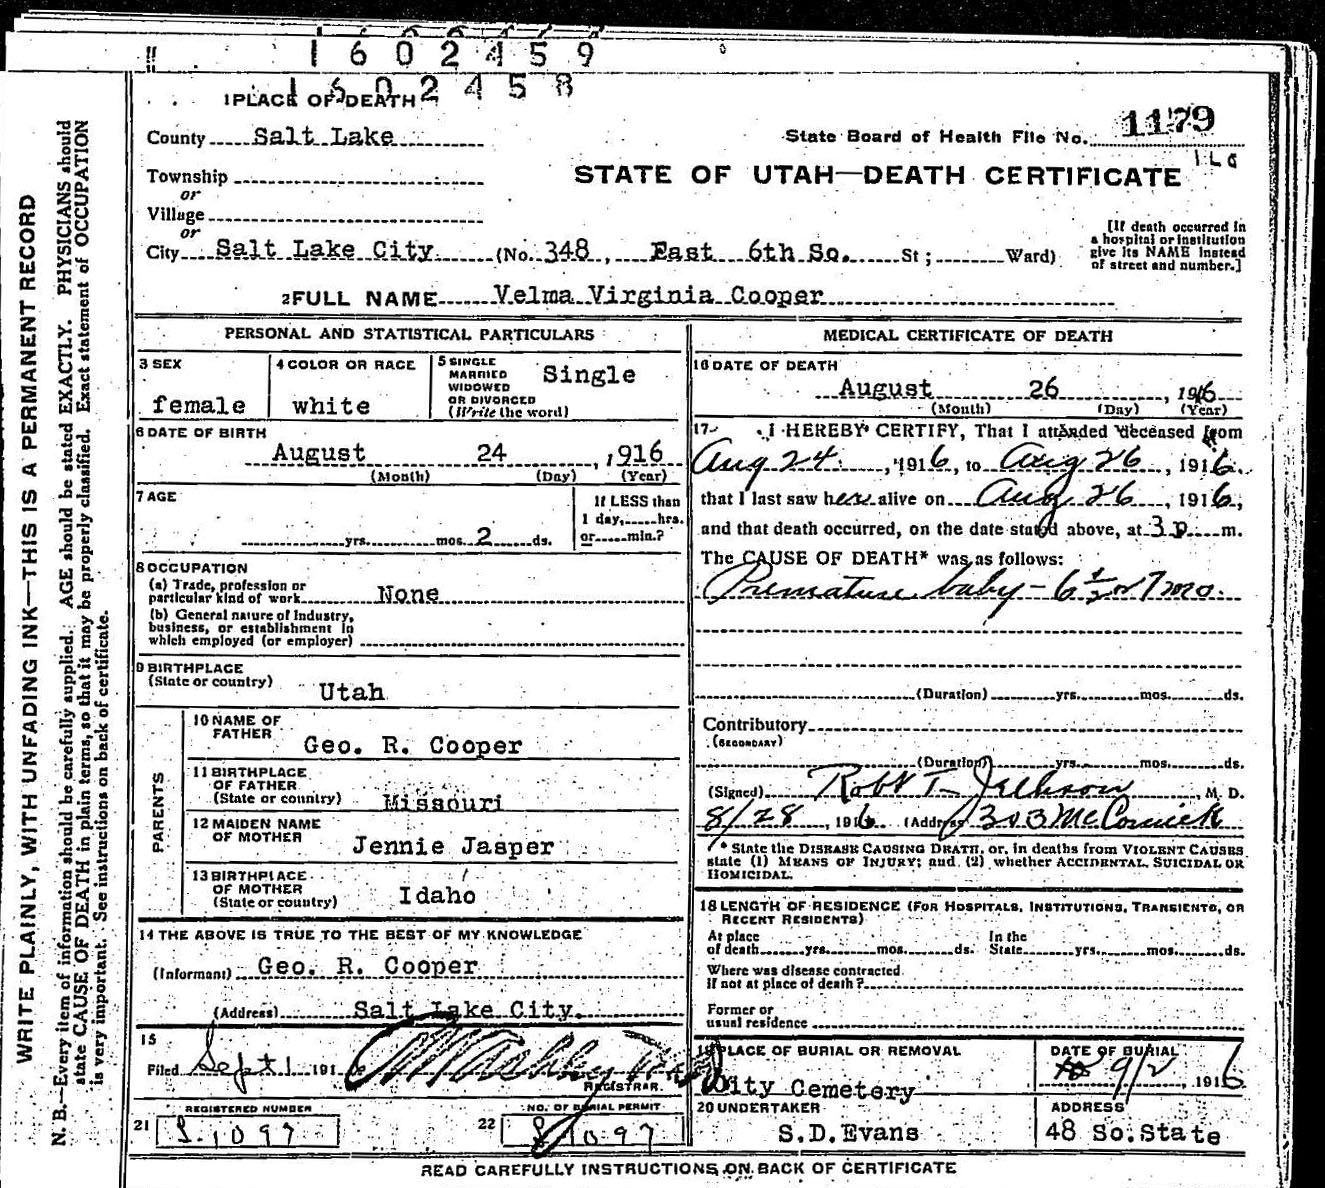 1602459
1602458
1 PLACE OF DEATH
County Salt Lake
State Board of Health File No. 1179
1 L G
Township
or
STATE OF UTAH—DEATH CERTIFICATE
Village
or
City Salt Lake City (No. 348, East 6th So. St; Ward)
[If death occurred in
a hospital or institution
give its NAME instead
of street and number.]
2 FULL NAME Velma Virginia Cooper
PERSONAL AND STATISTICAL PARTICULARS
3 SEX
female
4 COLOR OR RACE
white
5 SINGLE
MARRIED
WIDOWED
OR DIVORCED
(Write the word)
Single
6 DATE OF BIRTH
August 24, 1916
(Month) (Day) (Year)
7 AGE
yrs. mos. 2 ds.
If LESS than
1 day, hrs.
or min.?
8 OCCUPATION
(a) Trade, profession or
particular kind of work None
(b) General nature of Industry,
business, or establishment in
which employed (or employer)
9 BIRTHPLACE
(State or country)
Utah
PARENTS
10 NAME OF
FATHER
Geo. R. Cooper
11 BIRTHPLACE
OF FATHER
(State or country) Missouri
12 MAIDEN NAME
OF MOTHER
Jennie Jasper
13 BIRTHPLACE
OF MOTHER
(State or country) Idaho
14 THE ABOVE IS TRUE TO THE BEST OF MY KNOWLEDGE
(Informant) Geo. R. Cooper
(Address) Salt Lake City.
15
Filed Sept 1 1916
REGISTRAR.
REGISTERED NUMBER
21 S. 1097
NO. OF BURIAL PERMIT
22 S 1097
MEDICAL CERTIFICATE OF DEATH
16 DATE OF DEATH
August 26, 1916
(Month) (Day) (Year)
17 I HEREBY CERTIFY, That I attended deceased from
Aug 24, 1916, to Aug 26, 1916.
that I last saw her alive on Aug 26, 1916,
and that death occurred, on the date stated above, at 3 p m.
The CAUSE OF DEATH* was as follows:
Premature baby - 6 1/2 or 7 mo.
(Duration) yrs. mos. ds.
Contributory
(SECONDARY)
(Duration) yrs. mos. ds.
(Signed) Robt T. , M. D.
8/28, 1916 (Address) 303 McCornick
* State the DISEASE CAUSING DEATH, or, in deaths from VIOLENT CAUSES
state (1) MEANS OF INJURY; and (2) whether ACCIDENTAL, SUICIDAL OR
HOMICIDAL.
18 LENGTH OF RESIDENCE (FOR HOSPITALS, INSTITUTIONS, TRANSIENTS, OR
RECENT RESIDENTS)
At place
of death yrs. mos. ds.
In the
State yrs. mos. ds.
Where was disease contracted
If not at place of death?
Former or
usual residence
19 PLACE OF BURIAL OR REMOVAL
City Cemetery
DATE OF BURIAL
9/2, 1916
20 UNDERTAKER
S.D.Evans
ADDRESS
48 So.State
READ CAREFULLY INSTRUCTIONS ON BACK OF CERTIFICATE
WRITE PLAINLY, WITH UNFADING INK—THIS IS A PERMANENT RECORD
N. B.—Every item of information should be carefully supplied. AGE should be stated EXACTLY. PHYSICIANS should
state CAUSE OF DEATH in plain terms, so that it may be properly classified. Exact statement of OCCUPATION
is very important. See instructions on back of certificate.